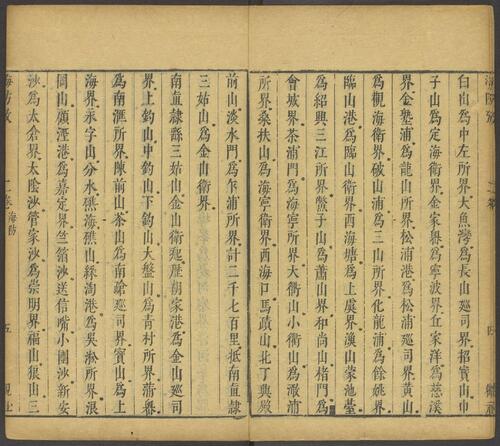 白山為中左所界大魚灣為長山巡司界招寶山中
子山為定海衛界金家嶴為寧波界丘家洋為慈溪
界金墊浦為龍山所界松浦港為松浦巡司界黃山
為觀海衛界破山浦為三山所界化龍浦為餘姚界
臨山港為臨山衛界西海塘為上虞界漁山蒙池臺
為紹興三江所界鱉子山為蕭山界和尚山楮門為
會城界茶浦門為海寧所界大衢山小衢山為澉浦
所界桑扶山為海寧衛界西海口馬蹟山北丁興殿
前山淡水門為乍浦所界計二千七百里抵南直隸
三姑山為金山衛界
南直隸縣三姑山金山衛起歷胡家港為金山巡司
界上釣山中釣山下釣山大盤山為青村所界蒲嶴
為南滙所界陳前山茶山為南蹌巡司界寶山為上
海界永字山分水礁海礁山綵淘港為吳淞所界浪
岡山顧涇港為嘉定界竺箔沙送信嘴小團沙新安
沙為太倉界太陰沙管家沙為崇明界福山狼山三
海防攷
二卷 海防
五